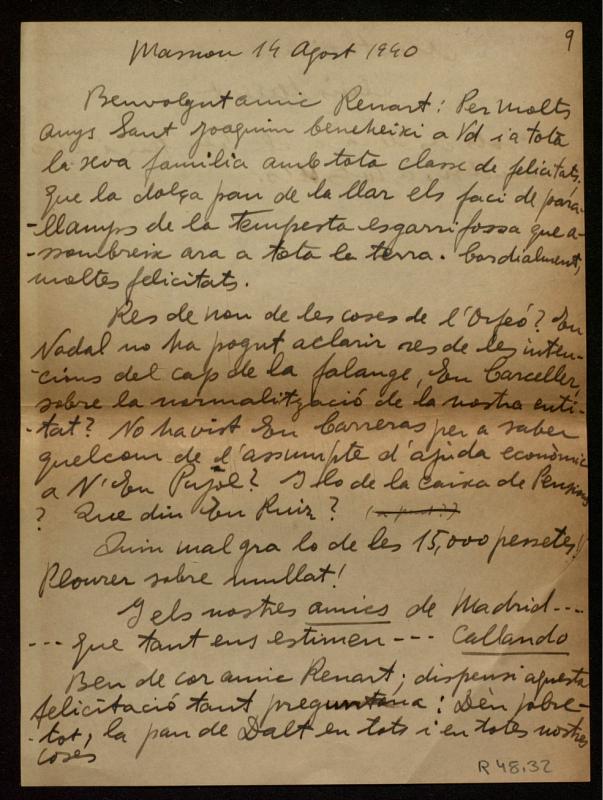 9
Masnou 14 Agost 1940
Benvolgut amic Renart: Per molts
anys Sant Joaquim beneheixi a Vd i a tota
la seva familia amb tota classe de felicitats.
Que la dolça pau de la llar els faci de para-
-llamps de la tempesta esgarrifossa que a-
-ssombreix ara a tota la terra. Cordialment,
moltes felicitats.
Res de nou de les coses de l'Orfeó? En
Nadal no ha pogut aclarir res de les inten-
cions del cap de la falange, En Carceller,
sobre la normalització de la nostra enti-
-tat? No ha vist En Carreras per a saber
quelcom de l'assumpte d'ajuda econòmica
a N'En Pujol? I lo de la caixa de Pensions
? Que diu En Ruiz?
Quin mal gra lo de les 15,000 pessetes!!
Plourer sobre mullat!
I els nostres amics de Madrid---
--- que tant ens estimen --- Callando
Ben de cor amic Renart; dispensi aquesta
felicitació tant : Dèn sobre-
-tot, la pau de Dalt en tots i en totes nostres
coses
R 48.32